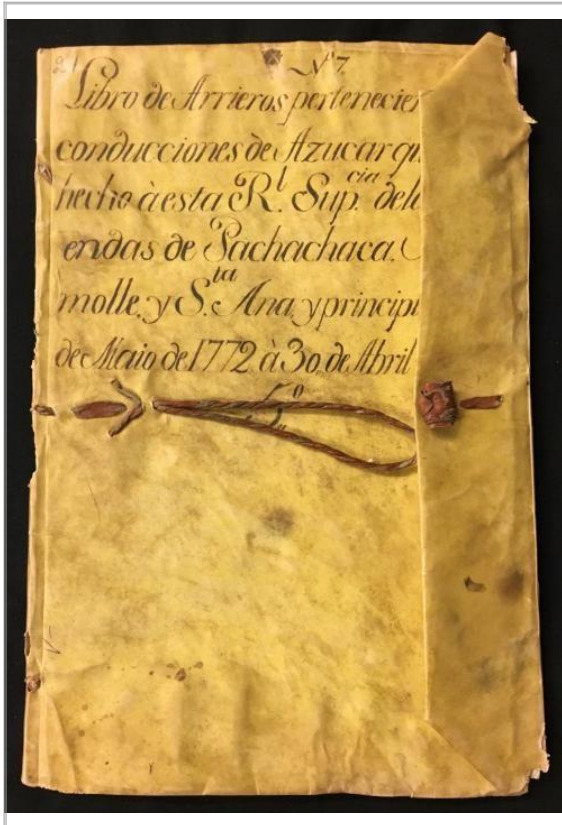 21 Nº 7.
Libro de Arrieros pertenecien
conducciones de Azucar qu
hecho à esta R.l Sup.cia dela
endas de Pachachaca.
molle, y S.ta Ana, y principi
de Maio de 1772 à 30, de Abril
5.º